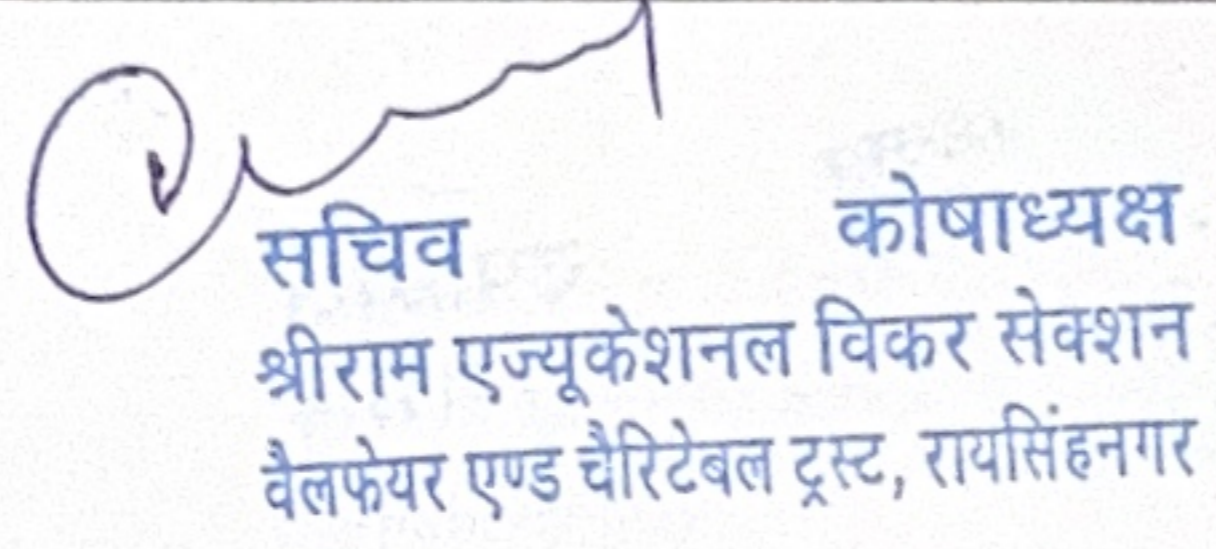 सचिव कोषाध्यक्ष
श्रीराम एज्यूकेशनल विकर सेक्शन
वैलफेयर एण्ड चैरिटेबल ट्रस्ट, रायसिंहनगर